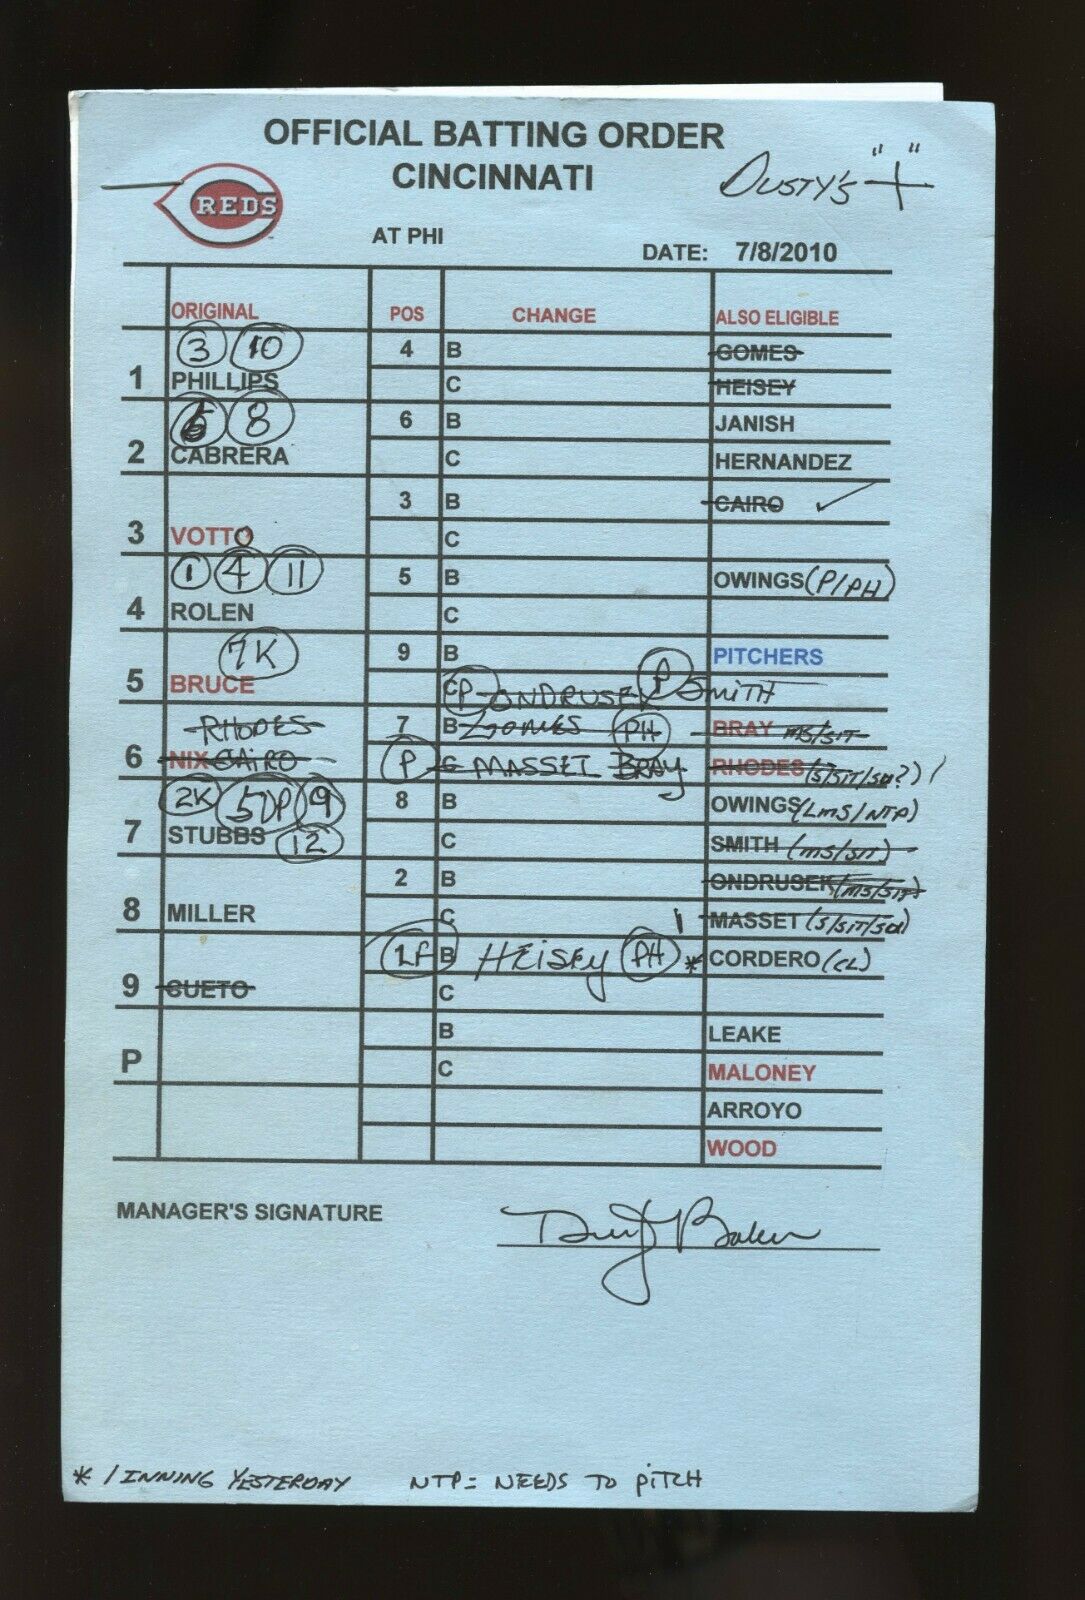 OFFICIAL BATTING ORDER
CINCINNATI
DUSTY'S "+"
REDS
AT PHI
DATE: 7/8/2010
ORIGINAL POS CHANGE ALSO ELIGIBLE
3 10 4 B GOMES
1 PHILLIPS C HEISEY
6 8 6 B JANISH
2 CABRERA C HERNANDEZ
3 B CAIRO
3 VOTTO C
1 4 11 5 B OWINGS (P/PH)
4 ROLEN C
7K 9 B PITCHERS
5 BRUCE C P ONDRUSEK P SMITH
RHODES 7 B GOMES PH BRAY MS/SIT
6 NIX CAIRO P C MASSET BRAY RHODES (S/SIT/SU?)
2K 5DP 9 8 B OWINGS (LMS/NTP)
7 STUBBS 12 C SMITH (MS/SIT)
2 B ONDRUSEK (MS/SIT)
8 MILLER C MASSET (S/SIT/SU)
LF B HEISEY PH * CORDERO (CL)
9 CUETO C
B LEAKE
P C MALONEY
ARROYO
WOOD
MANAGER'S SIGNATURE Dusty Baker
* 1 INNING YESTERDAY NTP = NEEDS TO PITCH